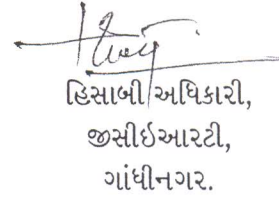 હિસાબી અધિકારી,
જીસીઇઆરટી,
ગાંધીનગર.